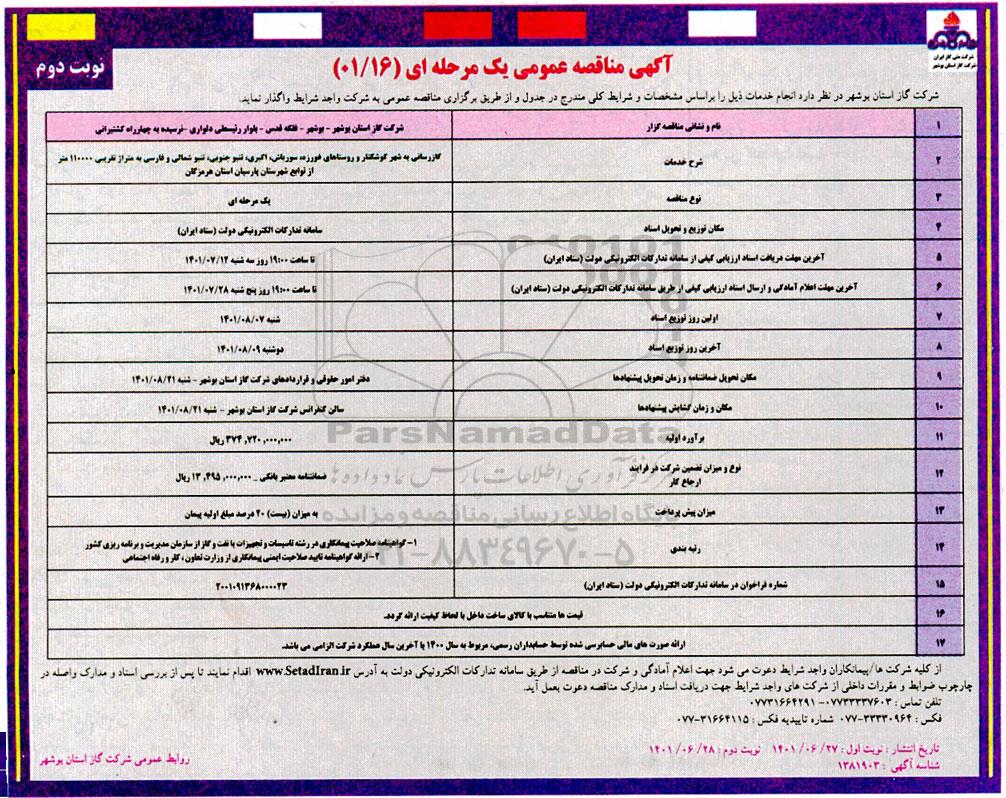 شرکت ملی گاز ایران
شرکت گاز استان بوشهر
نوبت دوم
آگهی مناقصه عمومی یک مرحله ای (۰۱/۱۶)
شرکت گاز استان بوشهر در نظر دارد انجام خدمات ذیل را براساس مشخصات و شرایط کلی مندرج در جدول و از طریق برگزاری مناقصه عمومی به شرکت واجد شرایط واگذار نماید.
۱ نام و نشانی مناقصه گزار شرکت گاز استان بوشهر - بوشهر - فلکه قدس - بلوار رئیسعلی دلواری -نرسیده به چهارراه کشتیرانی
۲ شرح خدمات گازرسانی به شهر کوشکنار و روستاهای فومره، سورباش، اکبری، تنبو جنوبی، تنبو شمالی و فارسی به متراژ تقریبی ۱۱۰۰۰۰ متر
از توابع شهرستان پارسیان استان هرمزگان
۳ نوع مناقصه یک مرحله ای
۴ مکان توزیع و تحویل اسناد سامانه تدارکات الکترونیکی دولت (ستاد ایران)
۵ آخرین مهلت دریافت اسناد ارزیابی کیفی از سامانه تدارکات الکترونیکی دولت (ستاد ایران) تا ساعت ۱۹:۰۰ روز سه شنبه ۱۴۰۱/۰۷/۱۲
۶ آخرین مهلت اعلام آمادگی و ارسال اسناد ارزیابی کیفی از طریق سامانه تدارکات الکترونیکی دولت (ستاد ایران) تا ساعت ۱۹:۰۰ روز پنج شنبه ۱۴۰۱/۰۷/۲۸
۷ اولین روز توزیع اسناد شنبه ۱۴۰۱/۰۸/۰۷
۸ آخرین روز توزیع اسناد دوشنبه ۱۴۰۱/۰۸/۰۹
۹ مکان تحویل ضمانتنامه و زمان تحویل پیشنهادها دفتر امور حقوقی و قراردادهای شرکت گاز استان بوشهر - شنبه ۱۴۰۱/۰۸/۲۱
۱۰ مکان و زمان گشایش پیشنهادها سالن کنفرانس شرکت گاز استان بوشهر - شنبه ۱۴۰۱/۰۸/۲۱
ParsNamadData
۱۱ برآورد اولیه ۳۷۴,۷۲۰,۰۰۰,۰۰۰ ریال
۱۲ نوع و میزان تضمین شرکت در فرایند
ارجاع کار ضمانتنامه معتبر بانکی _ ۱۳,۴۹۵,۰۰۰,۰۰۰ ریال
مرکز فرآوری اطلاعات پارس نماد داده ها
۱۳ میزان پیش پرداخت به میزان (بیست) ۲۰ درصد مبلغ اولیه پیمان
پایگاه اطلاع رسانی مناقصه و مزایده
۱۴ رتبه بندی ۱- گواهینامه صلاحیت پیمانکاری در رشته تاسیسات و تجهیزات یا نفت و گاز از سازمان مدیریت و برنامه ریزی کشور
۲- ارائه گواهینامه تایید صلاحیت ایمنی پیمانکاری از وزارت تعاون ، کار و رفاه اجتماعی
۰۲۱-۸۸۳۴۹۶۷۰-۵
۱۵ شماره فراخوان در سامانه تدارکات الکترونیکی دولت (ستاد ایران) ۲۰۰۱۰۹۱۳۶۸۰۰۰۰۲۳
۱۶ قیمت ها متناسب با کالای ساخت داخل با لحاظ کیفیت ارائه گردد.
۱۷ ارائه صورت های مالی حسابرسی شده توسط حسابداران رسمی، مربوط به سال ۱۴۰۰ یا آخرین سال عملکرد شرکت الزامی می باشد.
از کلیه شرکت ها/پیمانکاران واجد شرایط دعوت می شود جهت اعلام آمادگی و شرکت در مناقصه از طریق سامانه تدارکات الکترونیکی دولت به آدرس www.SetadIran.ir اقدام نمایند تا پس از بررسی اسناد و مدارک واصله در
چارچوب ضوابط و مقررات داخلی از شرکت های واجد شرایط جهت دریافت اسناد و مدارک مناقصه دعوت بعمل آید.
تلفن تماس : ۰۷۷۳۳۳۳۷۶۰۳ - ۰۷۷۳۱۶۶۴۲۹۱
فکس : ۳۳۳۳۰۹۶۴-۰۷۷ شماره تاییدیه فکس : ۳۱۶۶۴۱۱۵-۰۷۷
تاریخ انتشار : نوبت اول : ۲۷/ ۰۶/ ۱۴۰۱ نوبت دوم : ۲۸/ ۰۶/ ۱۴۰۱
شناسه آگهی : ۱۳۸۱۹۰۳
روابط عمومی شرکت گاز استان بوشهر